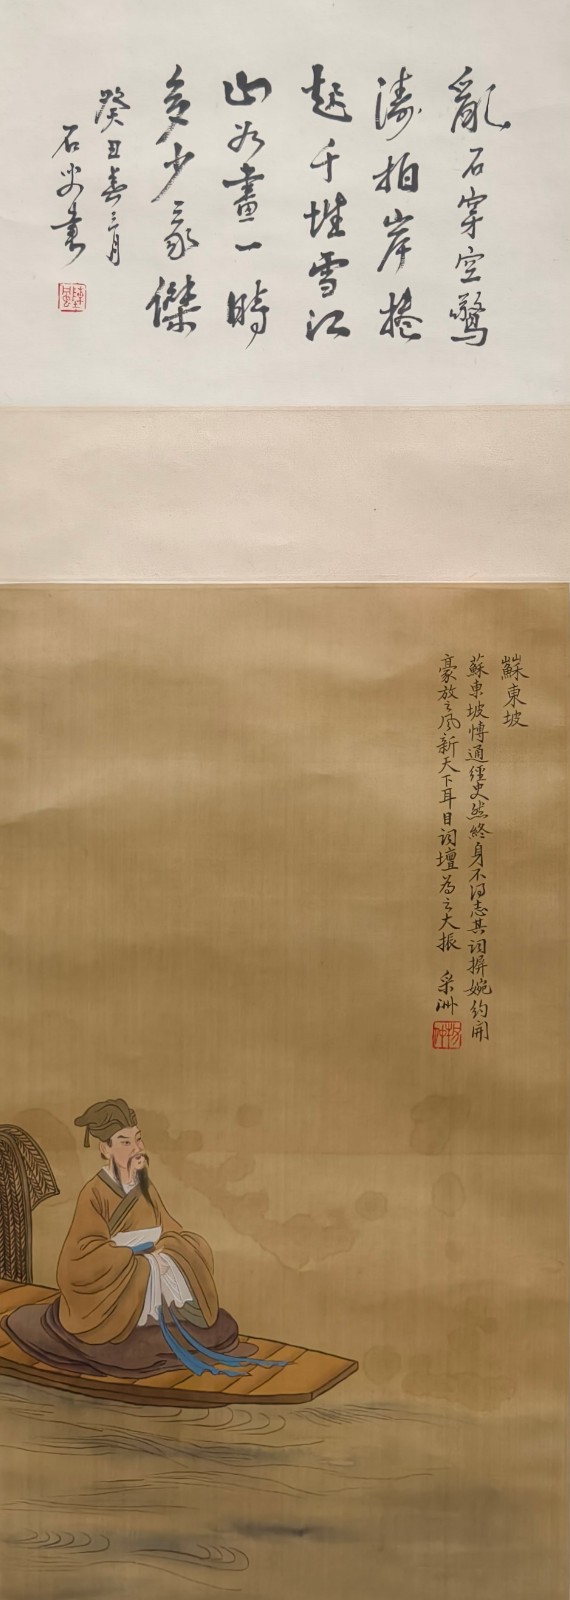 亂石穿空驚
濤拍岸捲
起千堆雪江
山如畫一時
多少豪傑
癸丑春三月
石叟書
蘇東坡
蘇東坡博通經史然終身不得志其詞摒婉約開
豪放之風新天下耳目詞壇為之大振 采洲